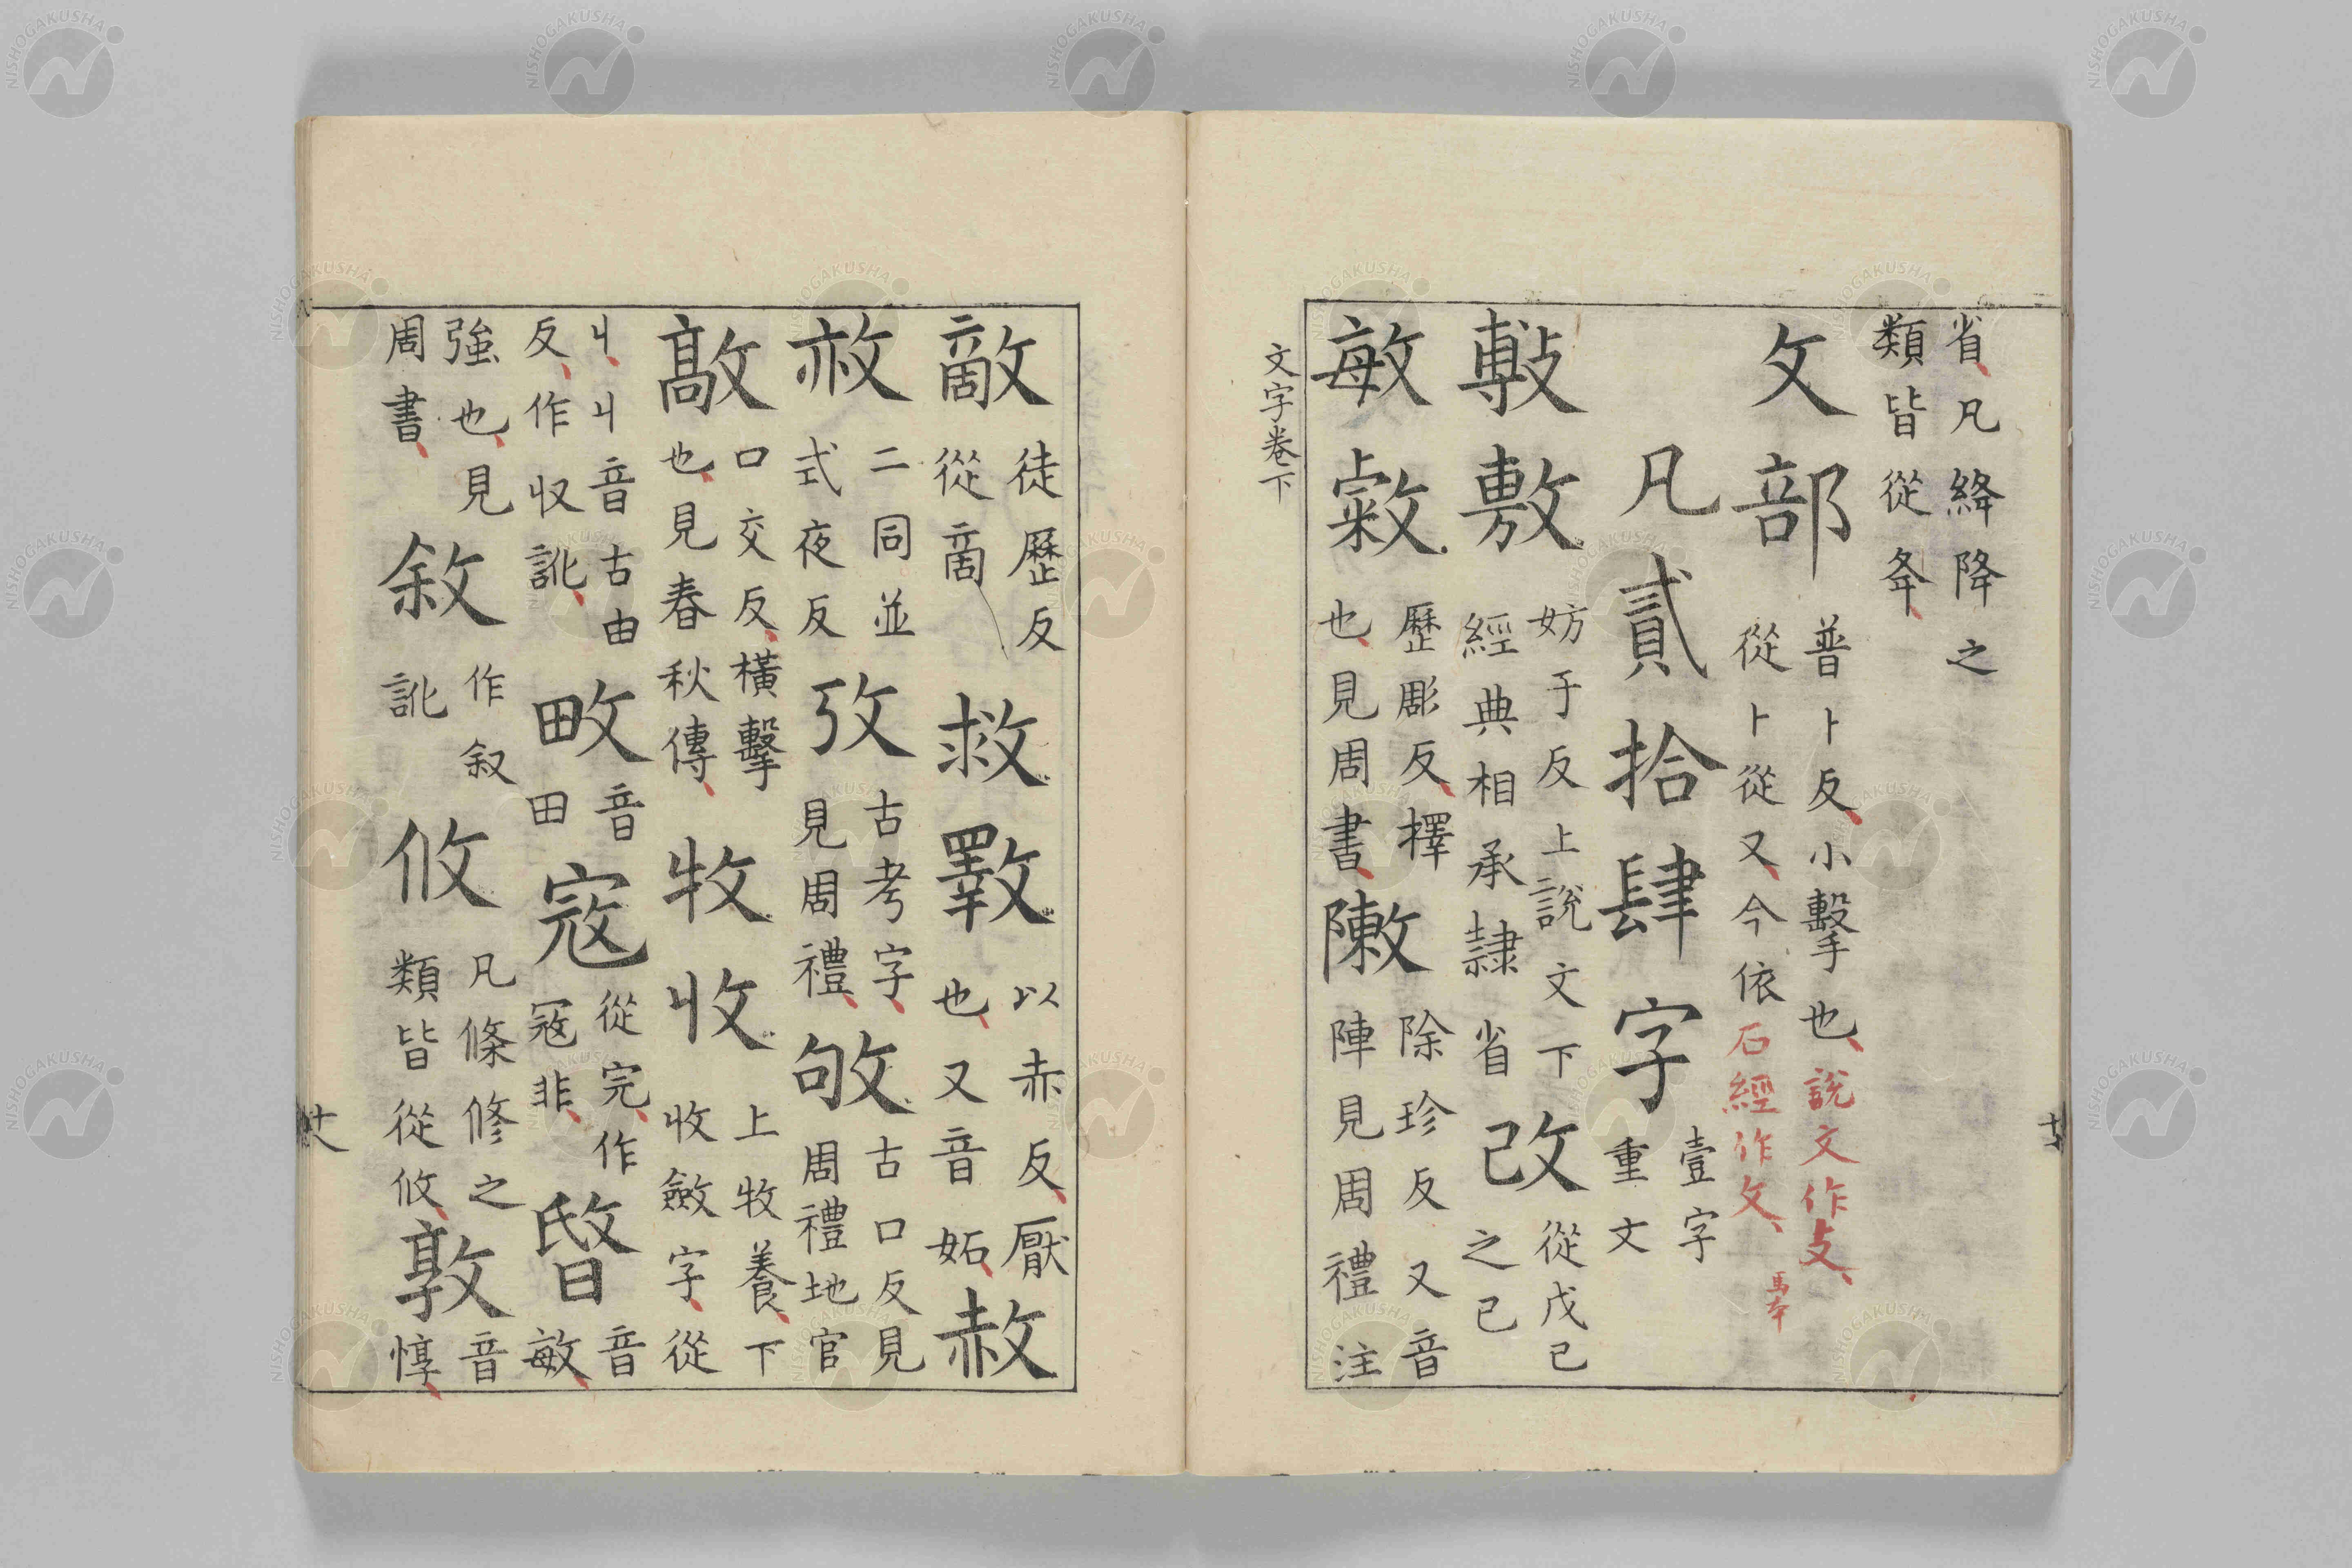 省凡絳降之
類皆從夅
攵部
普卜反小擊也說文作攴
從卜從又今依石經作攵
馬本
凡貳拾肆字
壹字
重文
敷
妨于反上說文下
經典相承隷省
改
從戊己
之己
敏
歷彫反擇
也見周書
敶
除珍反又音
陣見周禮注
文字卷下
敵
徒歷反
從啇
救斁
以赤反厭
也又音妬
赦
二同並
式夜反
攷
古考字
見周禮
敂
古口反見
周禮地官
敲
口交反橫擊
也見春秋傳
牧收
上牧養下
收斂字從
丩丩音古由
反作収訛
畋
音
田
寇
從完作
冦非
敃
音
敏
強也見
周書
敘
作叙
訛
攸
凡條修之
類皆從攸
敦
音
惇